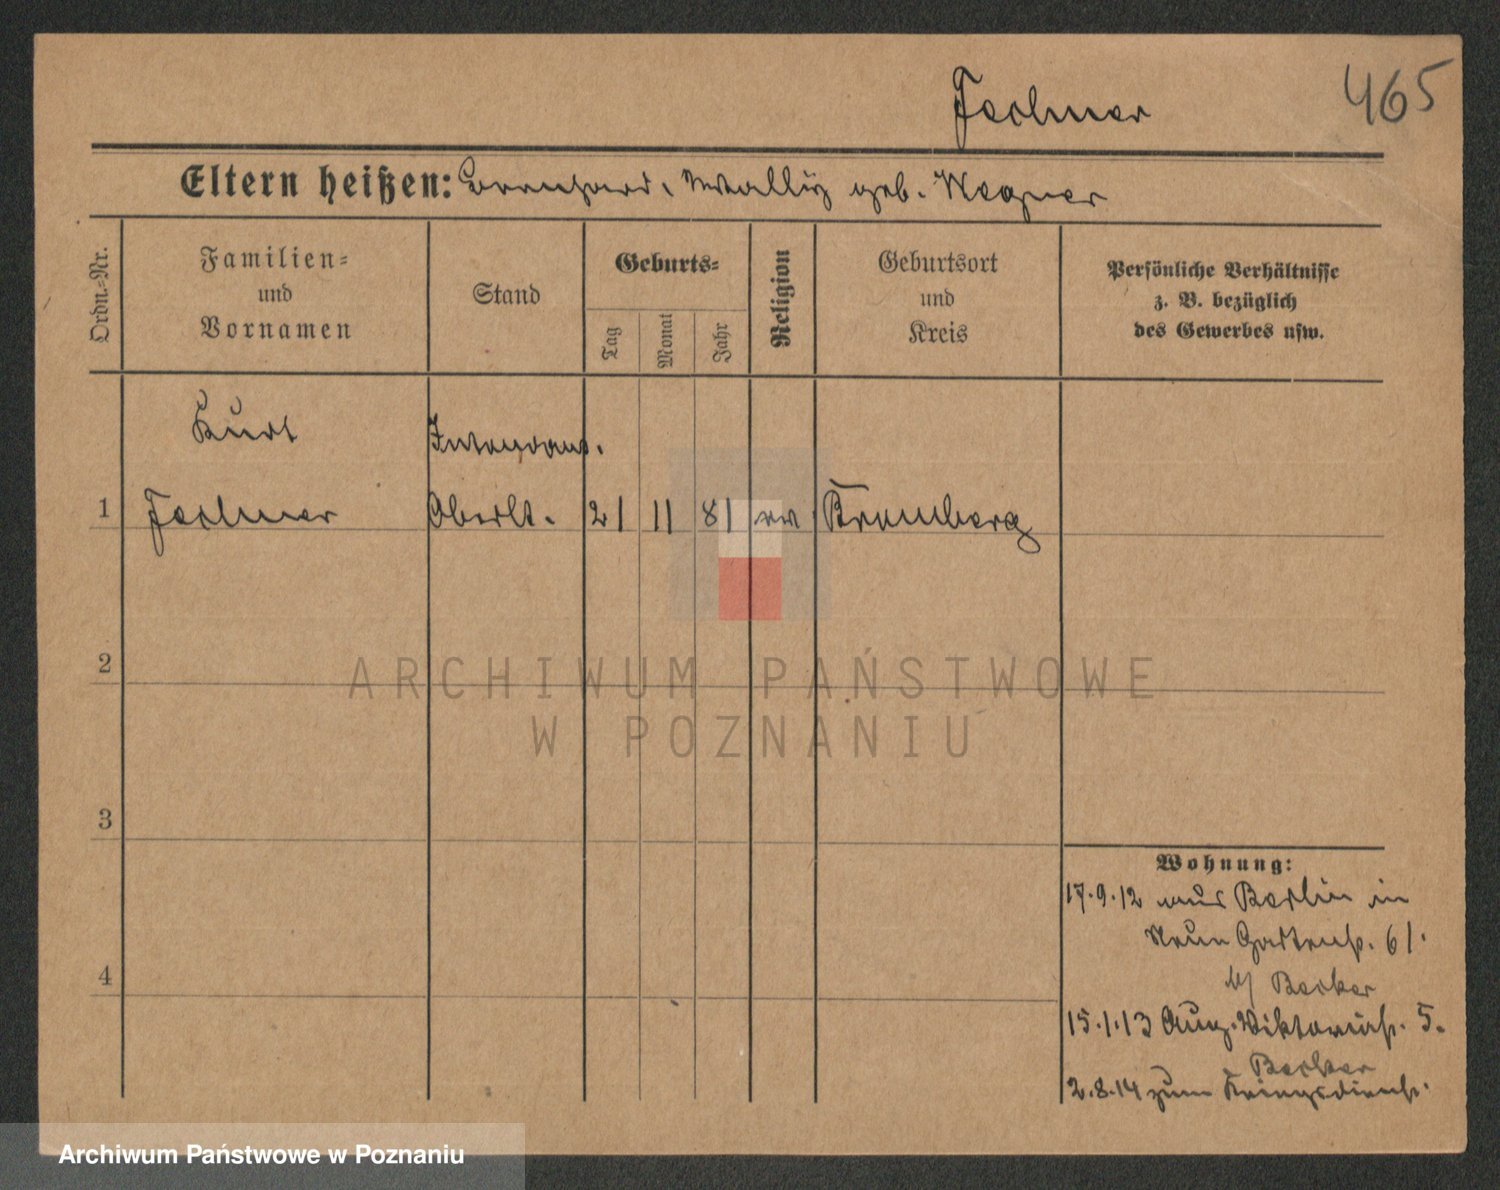 465
Fechner
Eltern heißen: Bernhard. Wally geb. Wegner
Ordn.-Nr.
Familien-
und
Vornamen
Stand
Geburts-
Tag
Monat
Jahr
Religion
Geburtsort
und
Kreis
Persönliche Verhältnisse
z. B. bezüglich
des Gewerbes usw.
Kurt
Intendant.
1
Fechner
Oberlt.
21
11
81
ev
Bromberg
2
ARCHIWUM PAŃSTWOWE
W POZNANIU
3
Wohnung:
17.9.12 aus Berlin in
Neue Gartenstr. 61.
b/ Becker
4
15.1.13 Aug. Viktoriastr. 5.
Becker
2.8.14 zum Kriegsdienst.
Archiwum Państwowe w Poznaniu